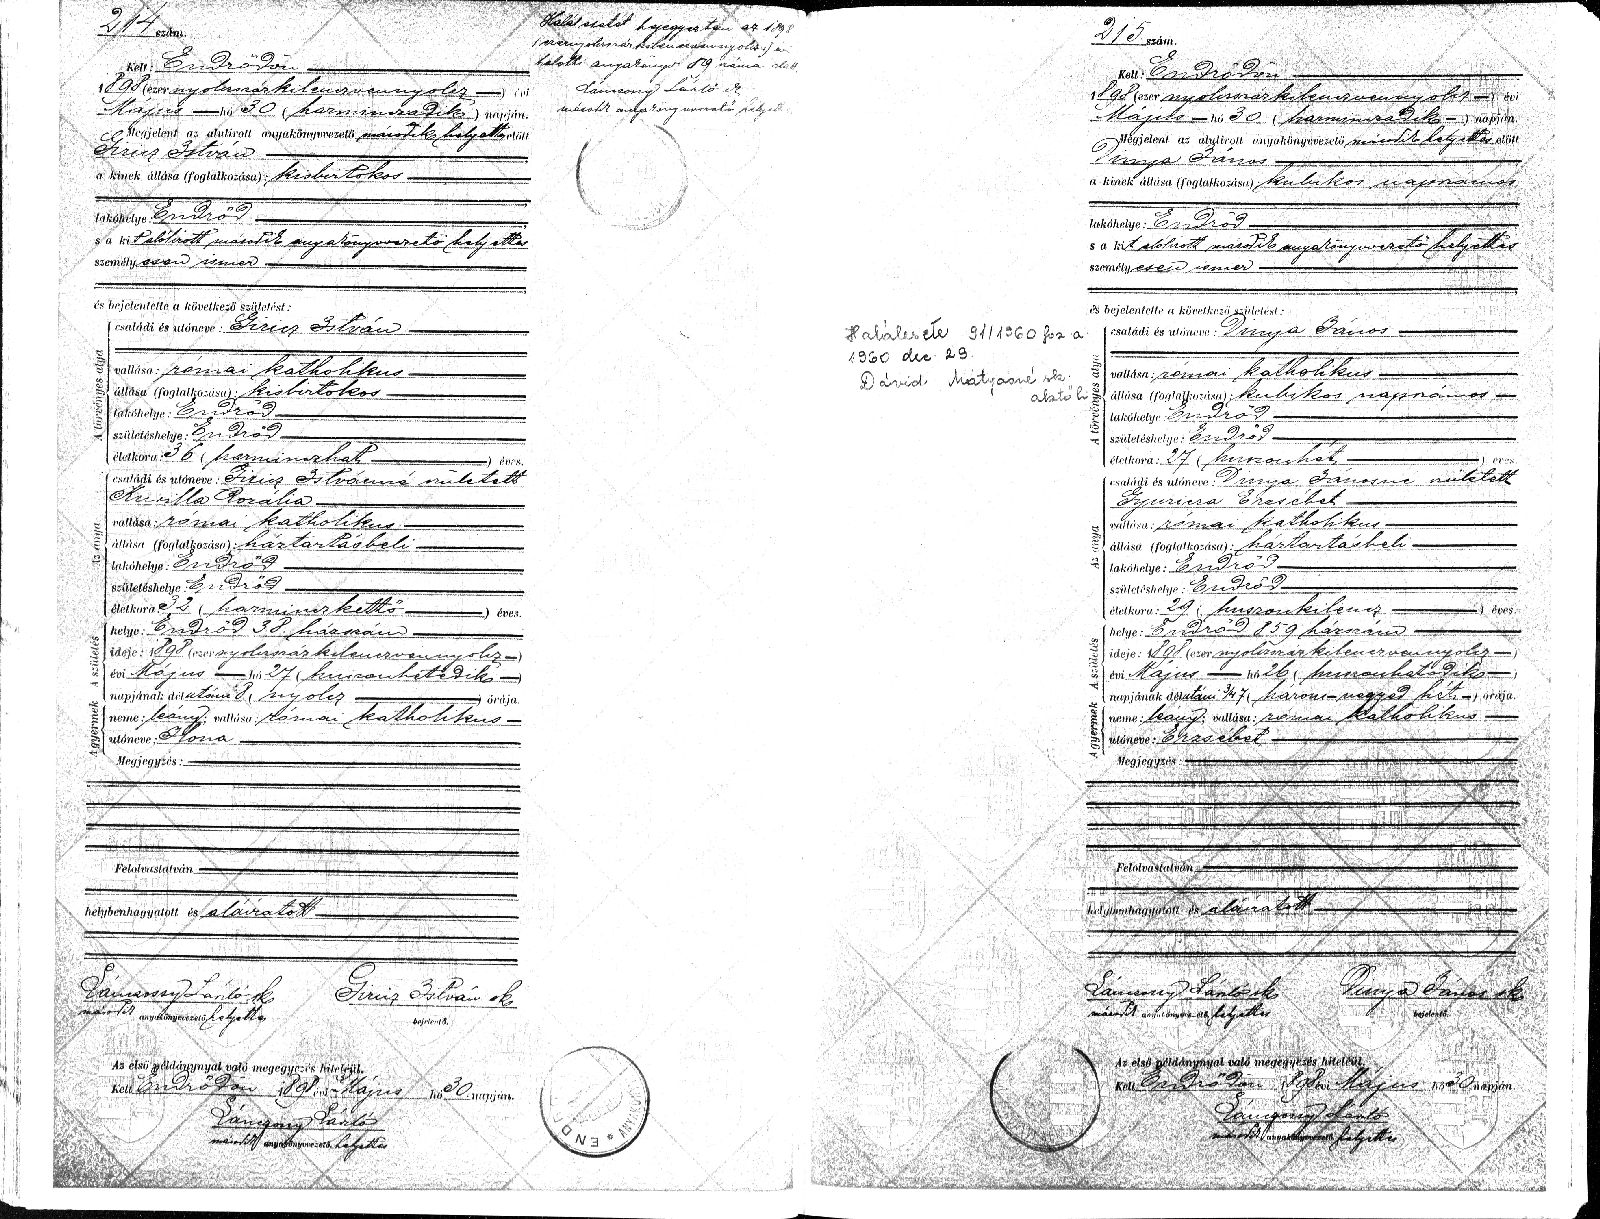 214 szám.
Kelt: Endrődön
1898 (ezernyolczszázkilenczvennyolcz) évi
Május hó 30 (harminczadik) napján.
Megjelent az alulirott anyakönyvvezető második helyettes előtt
Giricz István
a kinek állása (foglalkozása): kisbirtokos
lakóhelye: Endrőd
s a kit alólirott második anyakönyvvezető helyettes
személyesen ismer
és bejelentette a következő születést:
A törvényes atya
családi és utóneve: Giricz István
vallása: római katholikus
állása (foglalkozása): kisbirtokos
lakóhelye: Endrőd
születéshelye: Endrőd
életkora: 36 (harminczhat) éves.
Az anya
családi és utóneve: Giricz Istvánné született
Rozália
vallása: római katholikus
állása (foglalkozása): háztartásbeli
lakóhelye: Endrőd
születéshelye: Endrőd
életkora: 32 (harminczkettő) éves.
A születés
helye: Endrőd 38. házszám
ideje: 1898 (ezernyolczszázkilenczvennyolcz)
évi Május hó 27 (huszonhetedik)
napjának délutáni 8 (nyolcz) órája.
A gyermek
neme: leány; vallása: római katholikus
utóneve: Ilona
Megjegyzés:
Felolvastatván
helybenhagyatott és aláiratott
László sk
második anyakönyvvezető helyettes
Giricz István sk
bejelentő.
Az első példánynyal való megegyezés hiteléül.
Kelt Endrődön 1898 évi Május hó 30 napján.
László
második anyakönyvvezető helyettes
Halál esetét bejegyeztem az 1898
(ezernyolczszázkilenczvennyolcz) évi
halotti anyakönyv 89 száma alatt
László sk
második anyakönyvvezető helyettes
215 szám.
Kelt: Endrődön
1898 (ezernyolczszázkilenczvennyolcz) évi
Május hó 30 (harminczadik) napján.
Megjelent az alulirott anyakönyvvezető második helyettes előtt
Dunya János
a kinek állása (foglalkozása): kubikos napszámos
lakóhelye: Endrőd
s a kit alólirott második anyakönyvvezető helyettes
személyesen ismer
és bejelentette a következő születést:
A törvényes atya
családi és utóneve: Dunya János
vallása: római katholikus
állása (foglalkozása): kubikos napszámos
lakóhelye: Endrőd
születéshelye: Endrőd
életkora: 27 (huszonhét) éves.
Az anya
családi és utóneve: Dunya Jánosné született
Gyuricza Erzsébet
vallása: római katholikus
állása (foglalkozása): háztartásbeli
lakóhelye: Endrőd
születéshelye: Endrőd
életkora: 29 (huszonkilencz) éves.
A születés
helye: Endrőd 859 házszám
ideje: 1898 (ezernyolczszázkilenczvennyolcz)
évi Május hó 26 (huszonhatodik)
napjának délutáni 3/4 7 (három-negyed hét) órája.
A gyermek
neme: leány; vallása: római katholikus
utóneve: Erzsébet
Megjegyzés:
Felolvastatván
helybenhagyatott és aláiratott
László sk
második anyakönyvvezető helyettes
Dunya János sk
bejelentő.
Az első példánynyal való megegyezés hiteléül.
Kelt Endrődön 1898 évi Május hó 30 napján.
László
második anyakönyvvezető helyettes
Halálesete 91/1960 fsz a.
1960 dec 29.
Dávid Mátyásné sk.